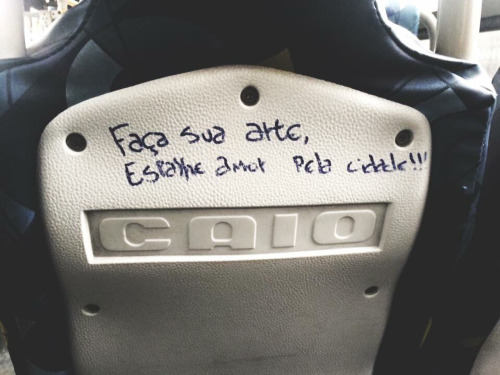 Faça sua arte,
Espalhe amor Pela cidade!!!
CAIO